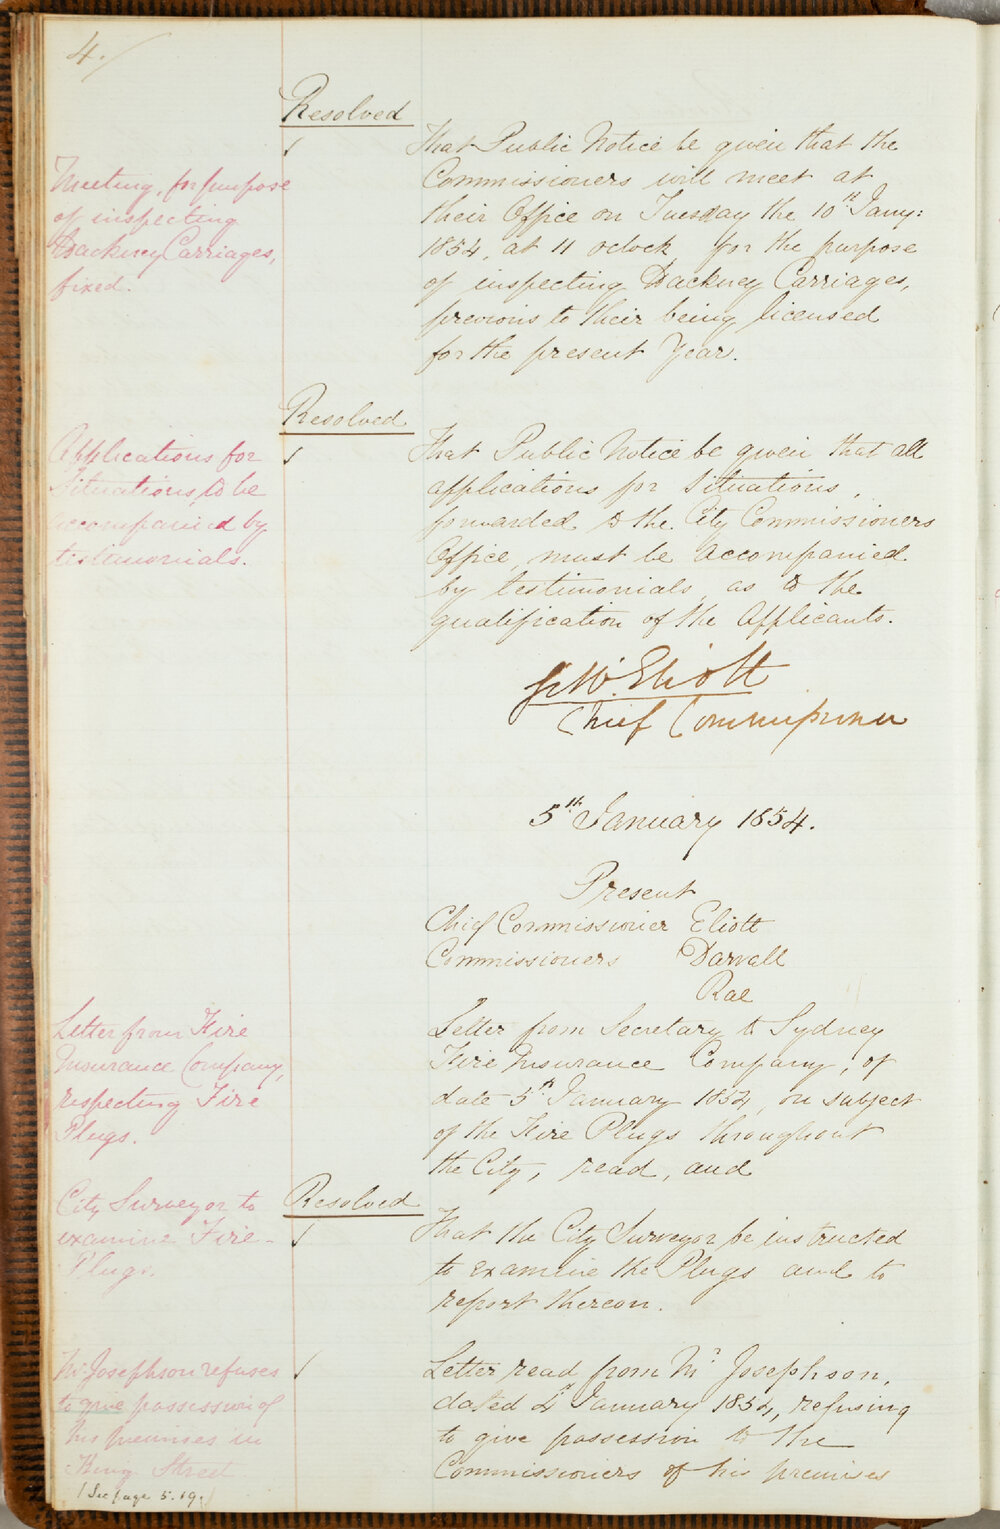 4./
Resolved
Meeting, for purpose
of inspecting
Hackney Carriages,
fixed.
That Public Notice be given that the
Commissioners will meet at
their Office on Tuesday the 10th Jany:
1854, at 11 oclock for the purpose
of inspecting Hackney Carriages,
previous to their being licensed
for the present Year.
Resolved
Applications for
Situations, to be
accompanied by
testimonials.
That Public Notice be given that all
applications for Situations,
forwarded to the City Commissioners
Office, must be accompanied
by testimonials, as to the
qualification of the Applicants.
G W Eliott
Chief Commissioner
5th January 1854.
Present
Chief Commissioner Eliott
Commissioners Darvall
Rae
Letter from Fire
Insurance Company,
respecting Fire
Plugs.
Letter from Secretary to Sydney
Fire Insurance Company, of
date 5th January 1854, on subject
of the Fire Plugs throughout
the City, read, and
City Surveyor to
examine Fire-
Plugs.
Resolved
That the City Surveyor be instructed
to examine the Plugs and to
report thereon.
Mr Josephson refuses
to give possession of
his premises in
King Street
(See page 5.19.)
Letter read from Mr Josephson,
dated 4th January 1854, refusing
to give possession to the
Commissioners of his premises